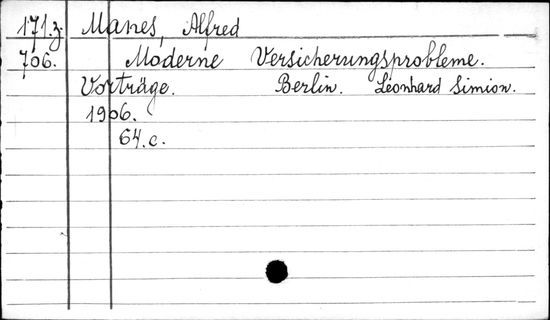 171.z Manes, Alfred
706. Moderne Versicherungsprobleme.
Vorträge. Berlin. Leonhard Simion.
1906.
64.c.